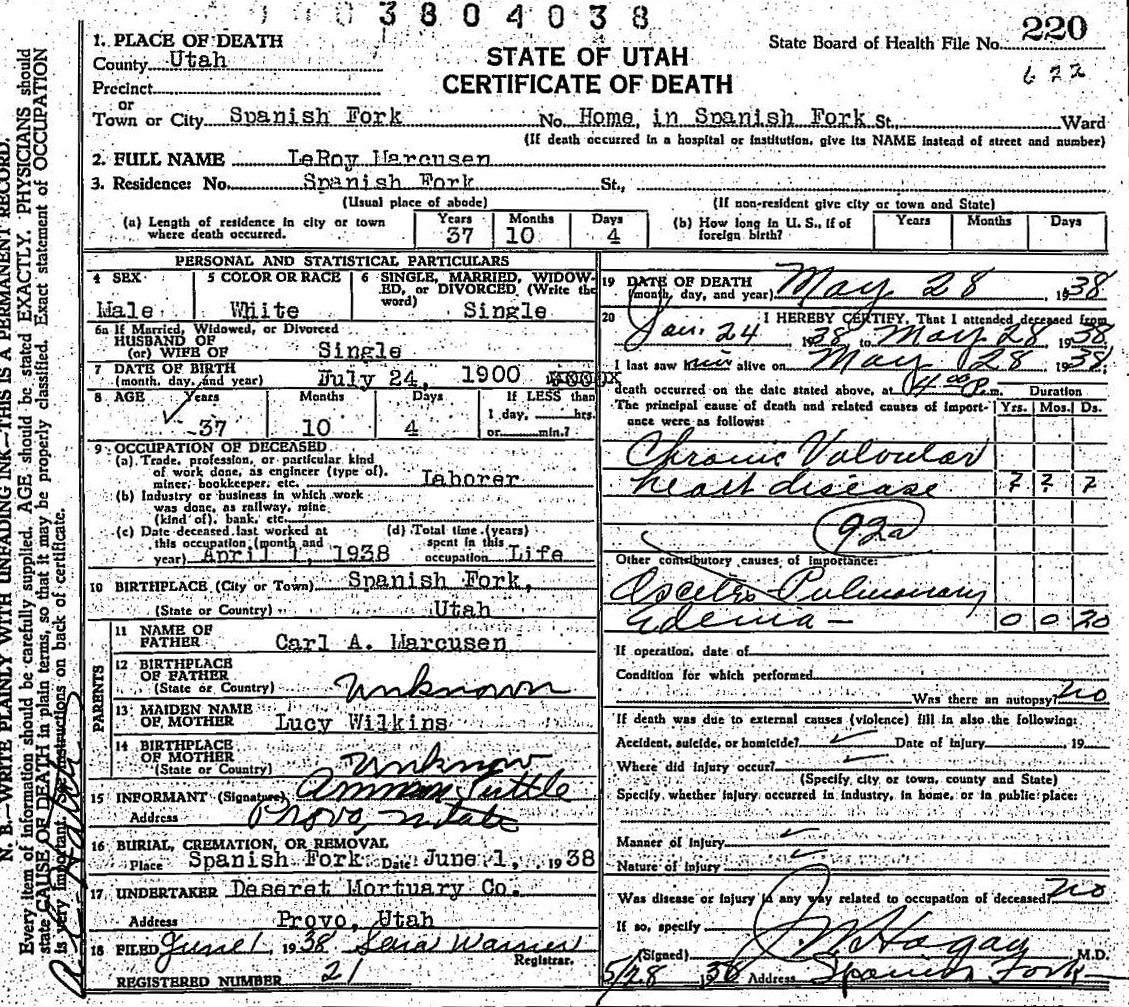 3804038
220
622
1. PLACE OF DEATH
County Utah
STATE OF UTAH
CERTIFICATE OF DEATH
State Board of Health File No.
Precinct
or
Town or City Spanish Fork No. Home, in Spanish Fork St., Ward
(If death occurred in a hospital or institution, give its NAME instead of street and number)
2. FULL NAME LeRoy Marcusen
3. Residence: No. Spanish Fork St.,
(Usual place of abode) (If non-resident give city or town and State)
(a) Length of residence in city or town where death occurred. Years 37 Months 10 Days 4
(b) How long in U. S., if of foreign birth? Years Months Days
PERSONAL AND STATISTICAL PARTICULARS
4 SEX Male
5 COLOR OR RACE White
6 SINGLE, MARRIED, WIDOWED, or DIVORCED, (Write the word) Single
6a If Married, Widowed, or Divorced
HUSBAND OF
(or) WIFE OF Single
7 DATE OF BIRTH
(month, day, and year) July 24, 1900
8 AGE Years 37 Months 10 Days 4 If LESS than 1 day, hrs. or min.?
9 OCCUPATION OF DECEASED
(a) Trade, profession, or particular kind
of work done, as engineer (type of),
miner, bookkeeper, etc. Laborer
(b) Industry or business in which work
was done, as railway, mine
(kind of), bank, etc.
(c) Date deceased last worked at
this occupation (month and
year) April 1, 1938
(d) Total time (years)
spent in this
occupation Life
10 BIRTHPLACE (City or Town) Spanish Fork,
(State or Country) Utah
PARENTS
11 NAME OF
FATHER Carl A. Marcusen
12 BIRTHPLACE
OF FATHER
(State or Country) Unknown
13 MAIDEN NAME
OF MOTHER Lucy Wilkins
14 BIRTHPLACE
OF MOTHER
(State or Country) Unknow
15 INFORMANT (Signature) Ammon Tuttle
Address Provo, Utah
16 BURIAL, CREMATION, OR REMOVAL
Place Spanish Fork Date June 1, 1938
17 UNDERTAKER Deseret Mortuary Co.
Address Provo, Utah
18 FILED June 1, 1938 Warner
Registrar.
REGISTERED NUMBER 21
19 DATE OF DEATH
(month, day, and year) May 28, 1938
20 I HEREBY CERTIFY, That I attended deceased from
Jan. 24 1938 to May 28 1938
I last saw him alive on May 28 1938
death occurred on the date stated above, at 4:00 P.m.
The principal cause of death and related causes of importance were as follows: Duration Yrs. Mos. Ds.
Chronic Valvular
heart disease ? ? ?
92a
Other contributory causes of importance:
Pulmonary
Edema - 0 0 20
If operation, date of
Condition for which performed
Was there an autopsy? no
If death was due to external causes (violence) fill in also the following:
Accident, suicide, or homicide? Date of Injury , 19
Where did injury occur?
(Specify city or town, county and State)
Specify whether injury occurred in industry, in home, or in public place:
Manner of Injury
Nature of Injury
Was disease or injury in any way related to occupation of deceased? no
If so, specify
(Signed) Hagan M.D.
5/28, 1938 Address Spanish Fork
N. B.—WRITE PLAINLY WITH UNFADING INK—THIS IS A PERMANENT RECORD.
Every item of information should be carefully supplied. AGE should be stated EXACTLY. PHYSICIANS should
state CAUSE OF DEATH in plain terms, so that it may be properly classified. Exact statement of OCCUPATION
is very important. See instructions on back of certificate.